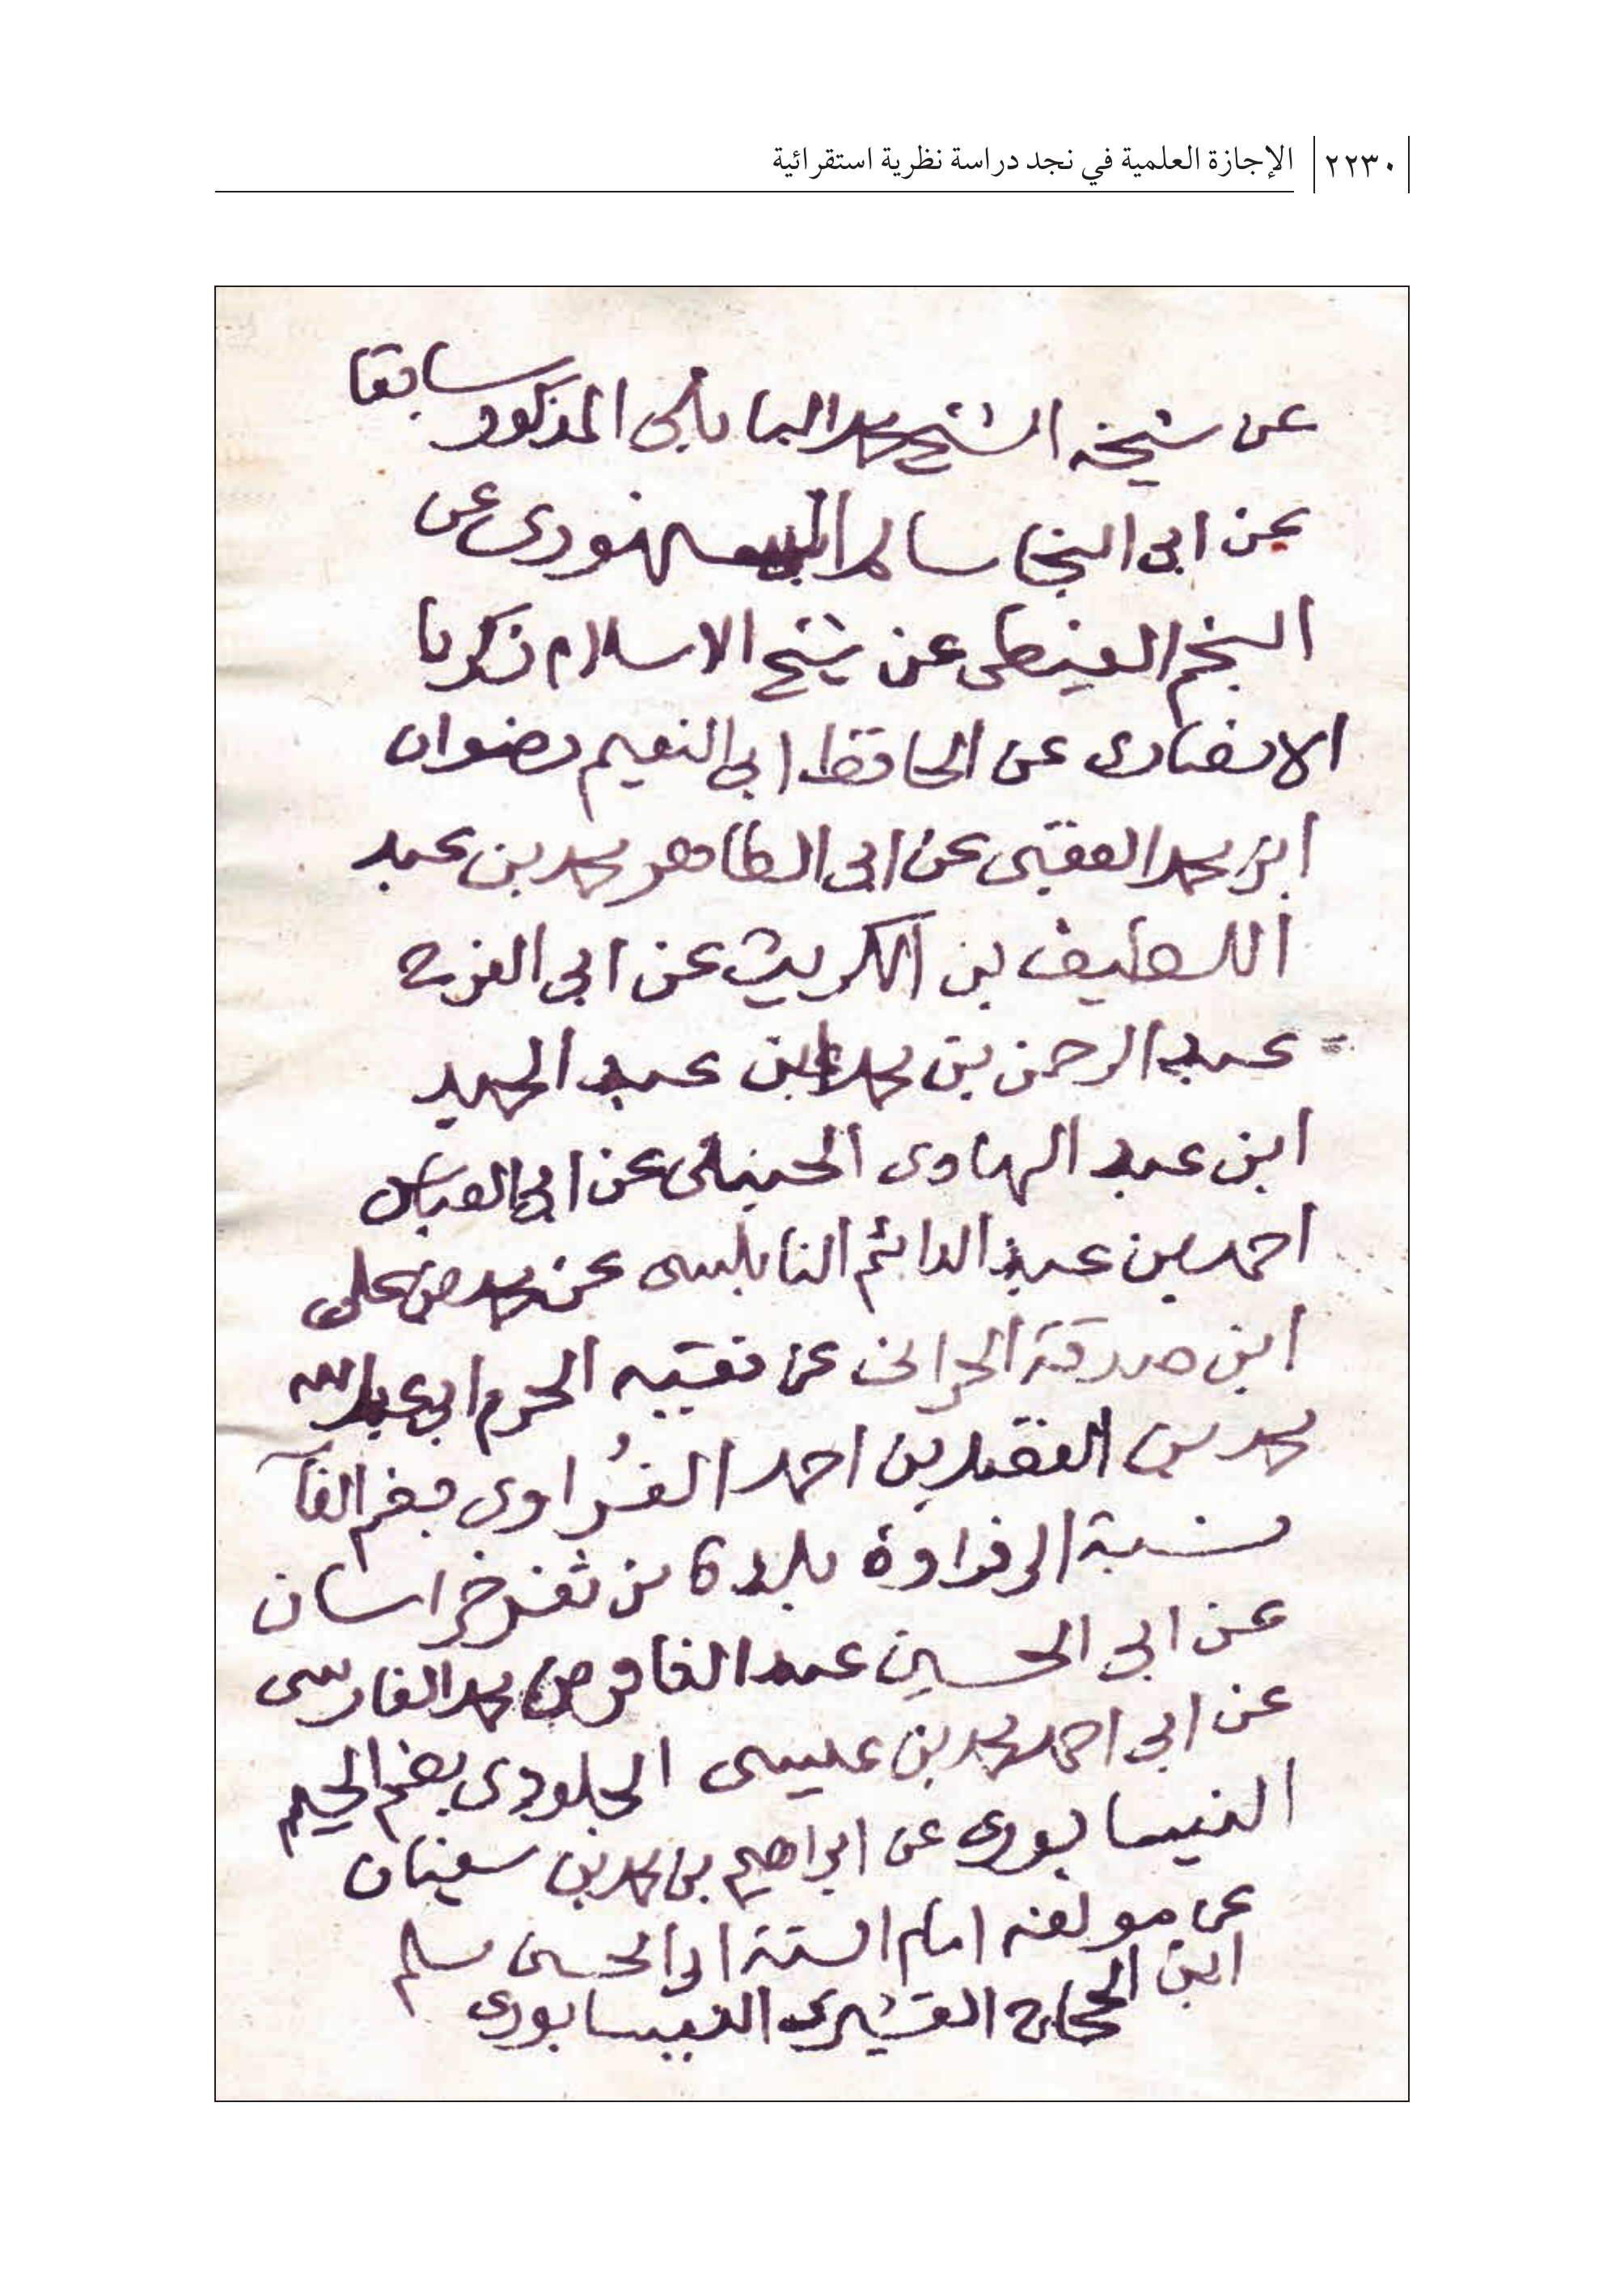 ٢٢٣٠ الإجازة العلمية في نجد دراسة نظرية استقرائية
عن شيخه الشيخ محمد البابلى المذكور سابقا
عن ابى النجا سالم السنهورى عن
النجم الغيطى عن شيخ الاسلام زكريا
الانصارى عن الحافظ ابى النعيم رضوان
ابن محمد العقبى عن ابى الطاهر محمد بن عبد
اللطيف بن الكويك عن ابى الفرج
عبد الرحمن بن محمد بن عبد الحميد
ابن عبد الهادى الحنبلى عن ابى العباس
احمد بن عبد الدائم النابلسى عن محمد بن على
ابن صدقة الحرانى عن فقيه الحرم ابى عبد الله
محمد بن الفضل بن احمد الفُراوى بضم الفآ
نسبة الى فراوة بلدة من ثغر خراسان
عن ابى الحسين عبد الغافر بن محمد الفارسى
عن ابى احمد محمد بن عيسى الجلودى بضم الجيم
النيسابورى عن ابراهيم بن محمد بن سفيان
عن مولفه امام السنة ابى الحسين مسلم
ابن الحجاج القشيرى النيسابورى